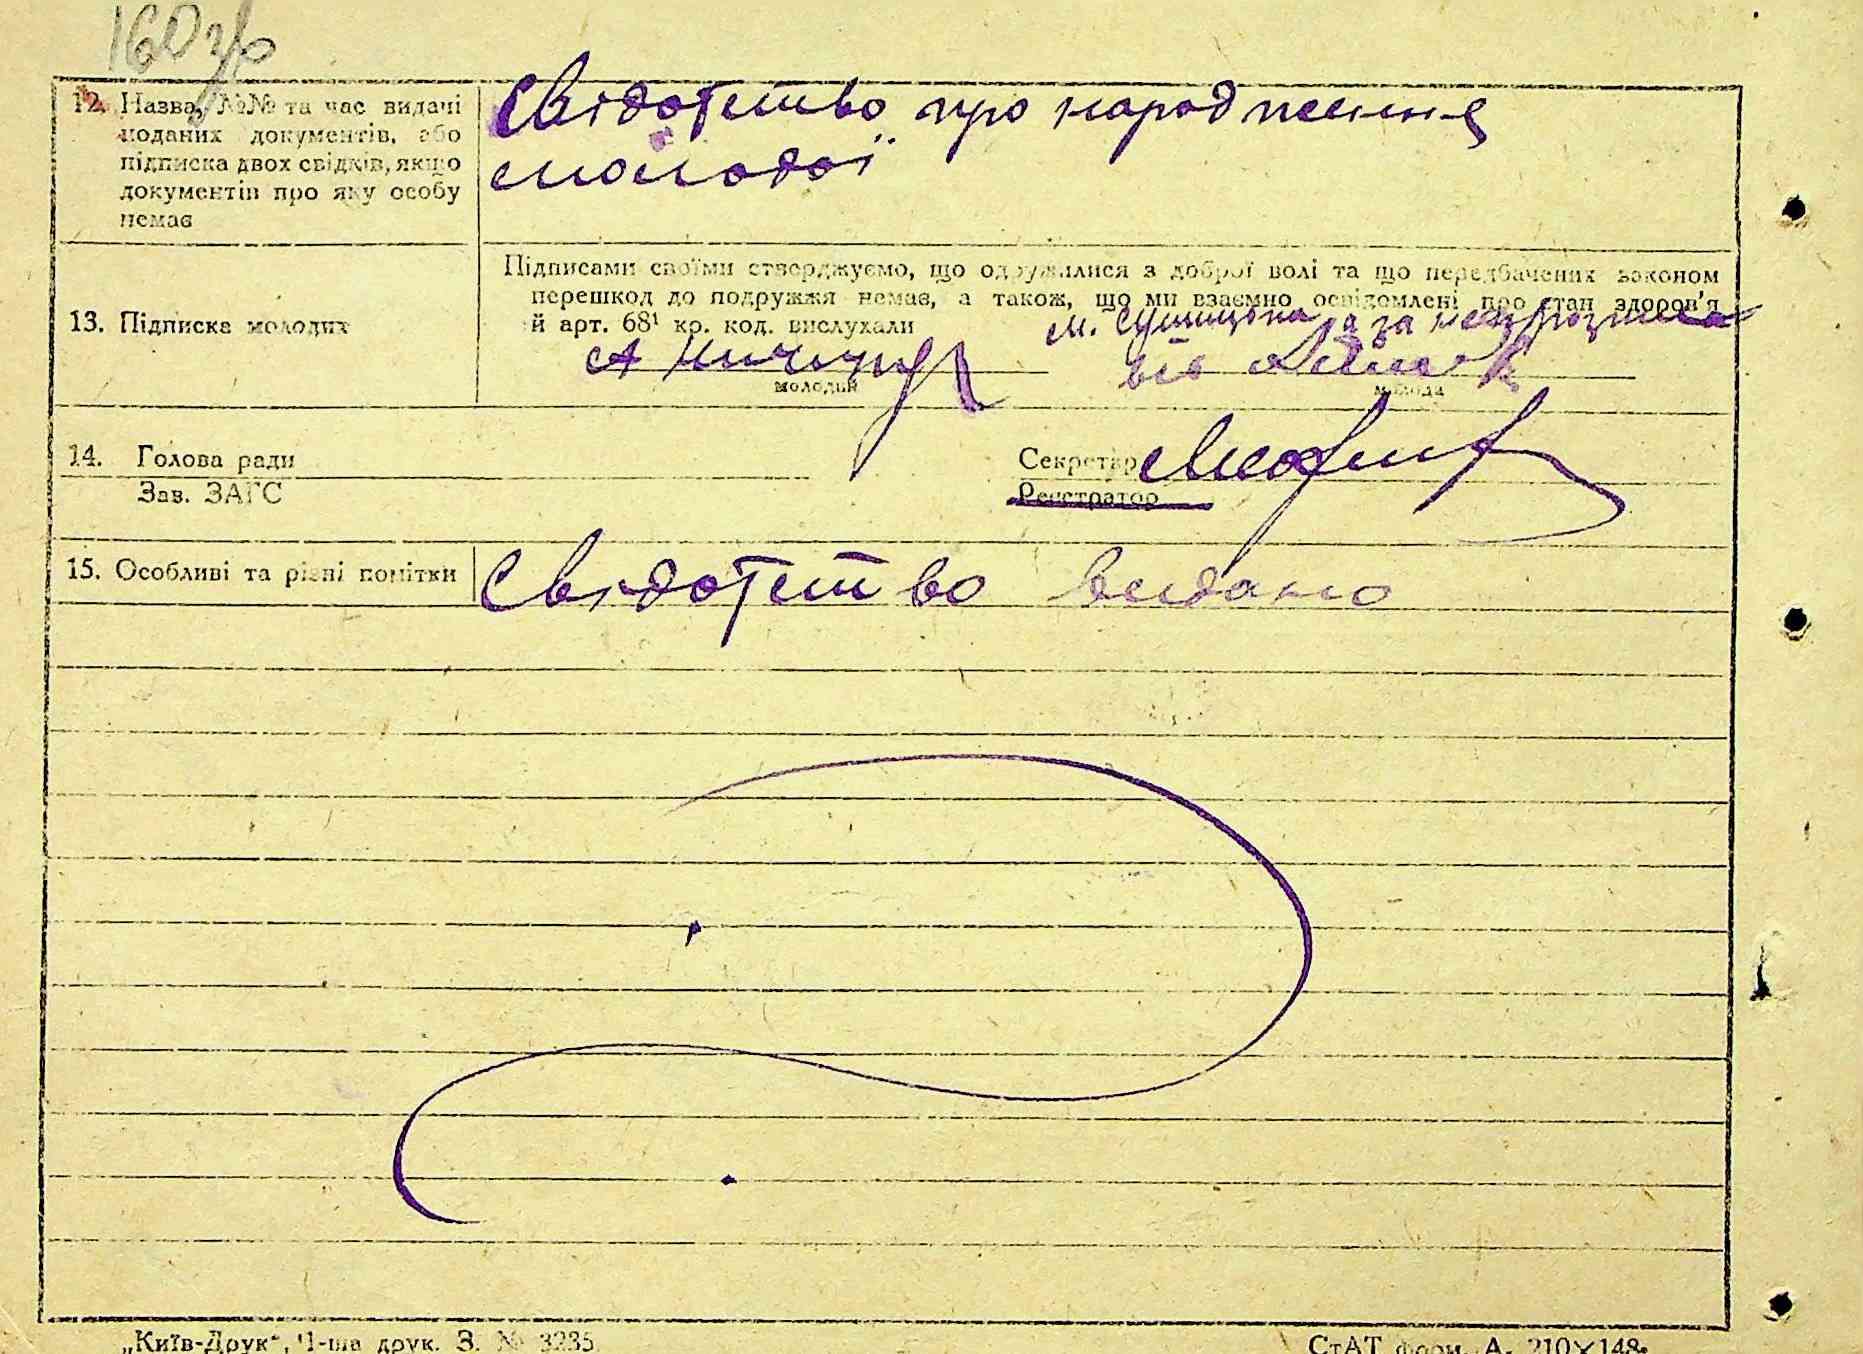 160 зв
12. Назва, №№ та час видачі
поданих документів, або
підписка двох свідків, якщо
документів про яку особу
немає
Свідотство про народження
молодої
13. Підписка молодих
Підписами своїми стверджуємо, що одружилися з доброї волі та що передбачених законом
перешкод до подружжя немає, а також, що ми взаємно освідомлені про стан здоров'я
й арт. 68¹ кр. код. вислухали
а за
молодий
молода
14. Голова ради
Зав. ЗАГС
Секретар
Реєстратор
15. Особливі та різні помітки
Свідотство видано
„Київ-Друк“, 1-ша друк. З. № 3235
СтАТ форм. А. 210×148.